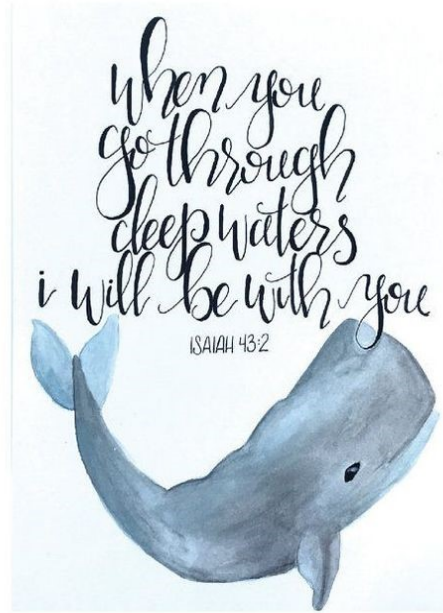 when you
go through
deep waters
i will be with you
ISAIAH 43:2